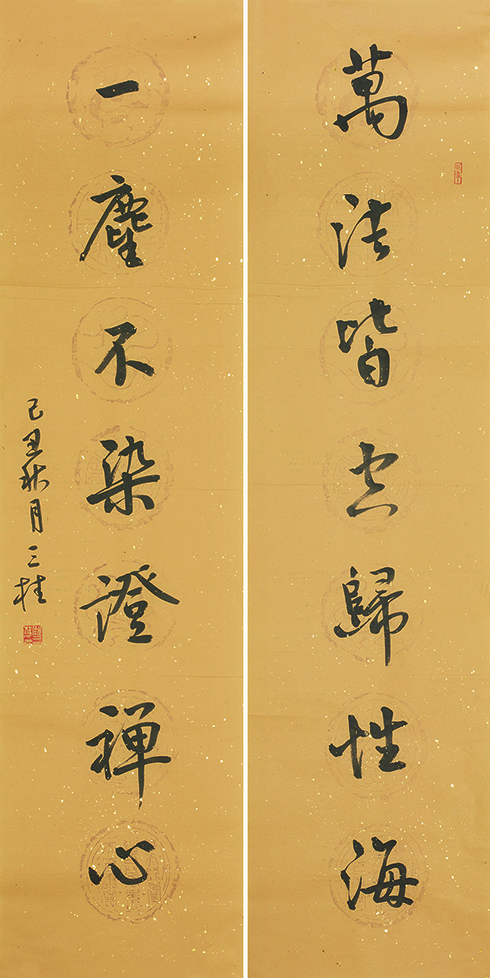 萬法皆空歸性海
一塵不染證禪心
己丑秋月三桂